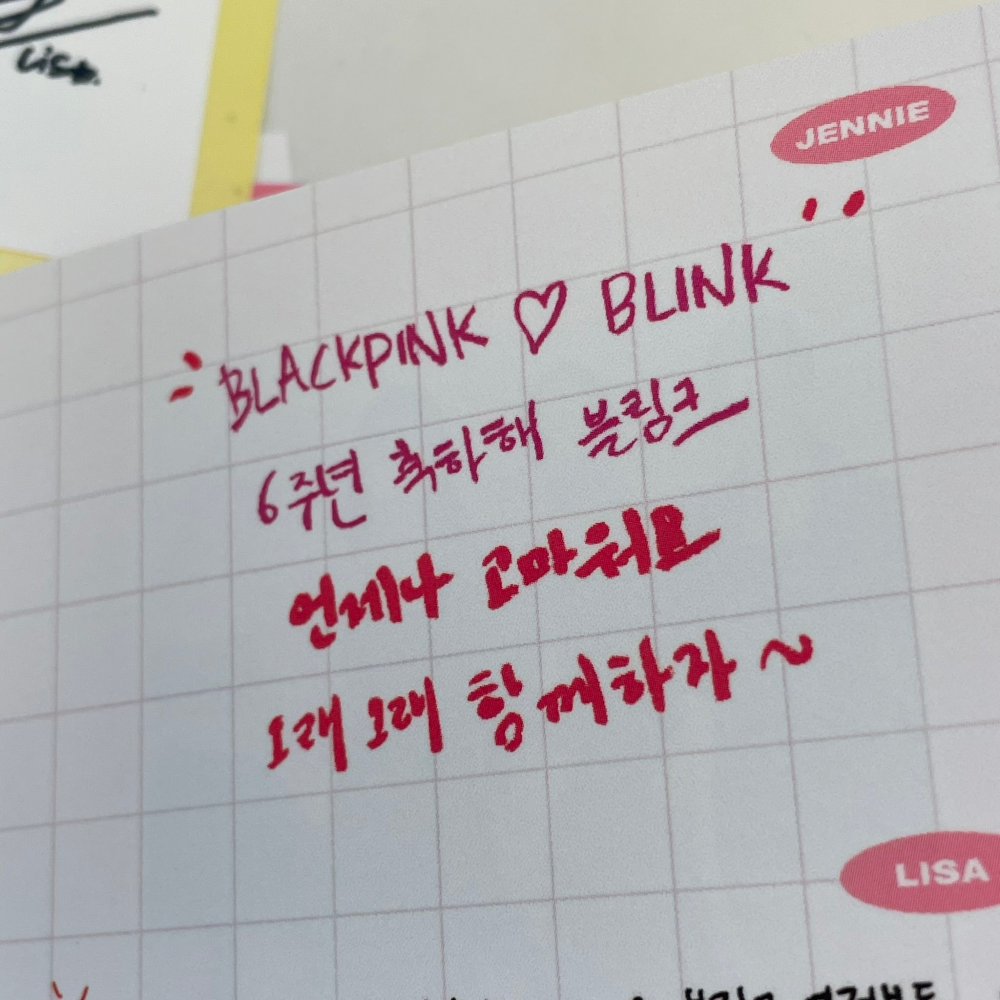 Lisa.
JENNIE
BLACKPINK ♡ BLINK
6주년 축하해 블링크
언제나 고마워요
오래오래 함께하자~
LISA